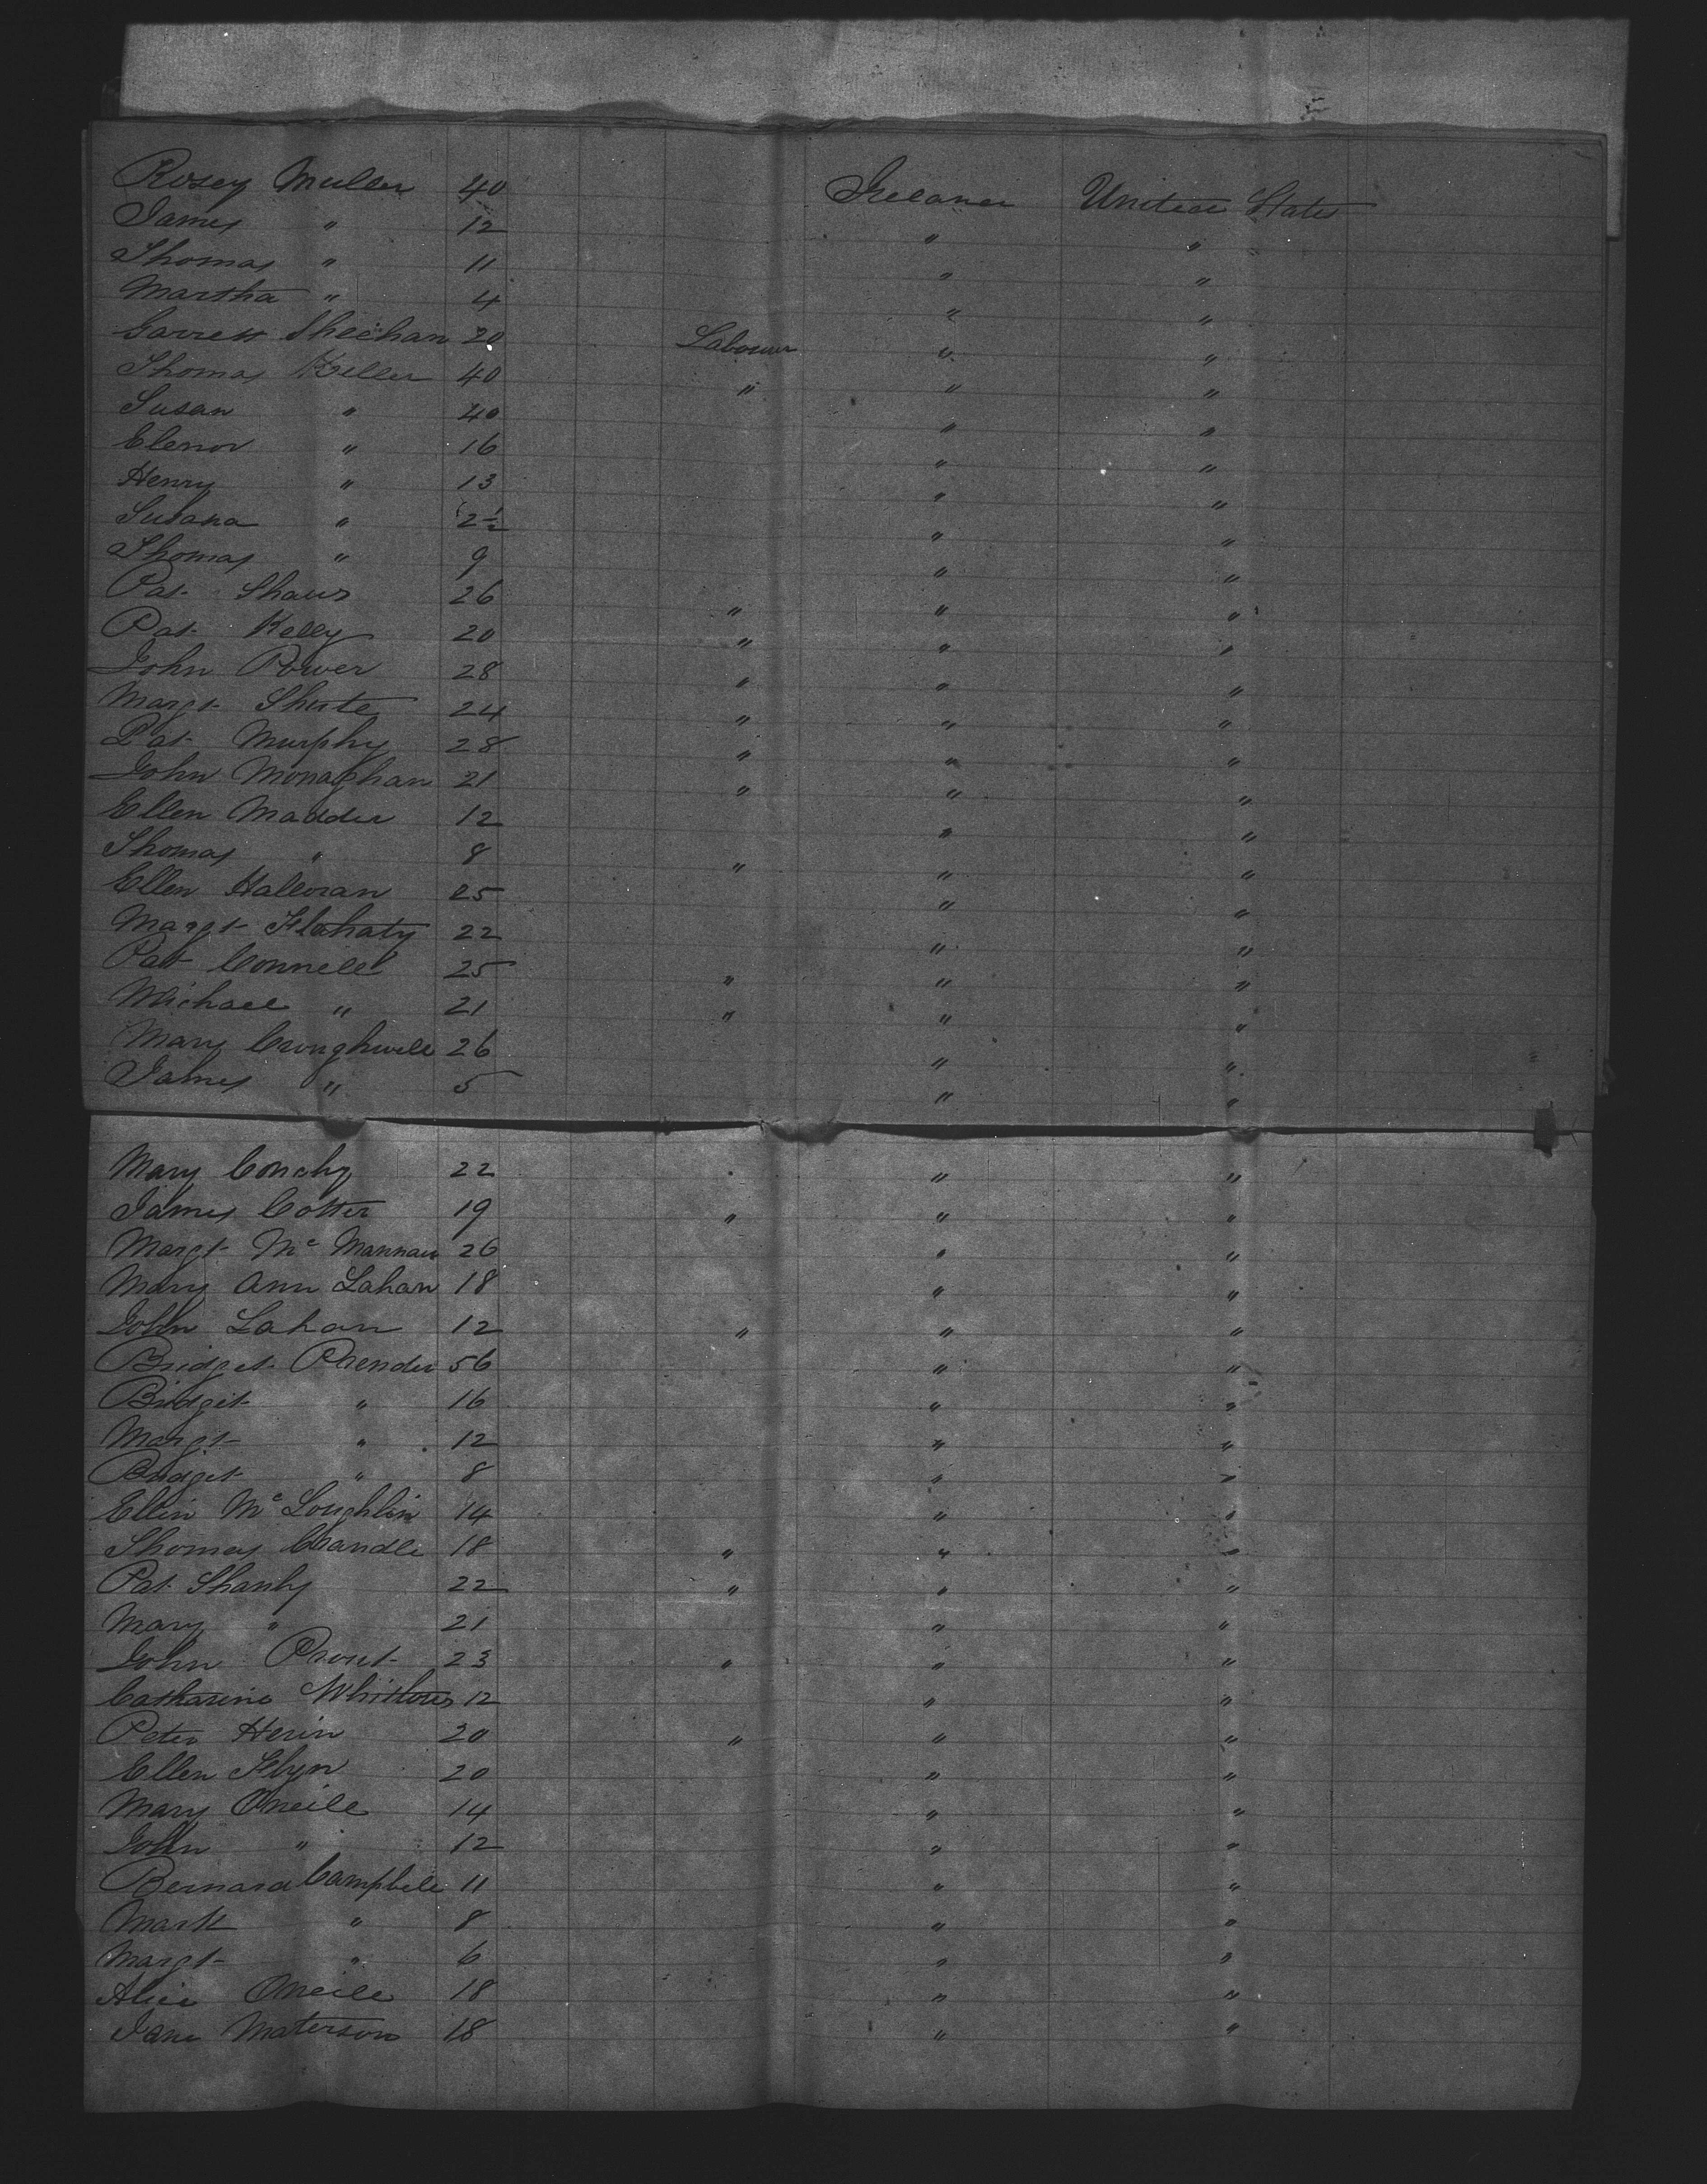 Rosey Muller 40 Ireland United States
James " 12 " "
Thomas " 11 " "
Martha " 4 " "
Garrett Sheehan 20 Labourer " "
Thomas Keller 40 " " "
Susan " 40 " "
Elenor " 16 " "
Henry " 13 " "
Susana " 2½ " "
Thomas " 9 " "
Pat Shaus 26 " " "
Pat Kelly 20 " " "
John Power 28 " " "
Margt Shute 24 " " "
Pat Murphy 28 " " "
John Monaghan 21 " " "
Ellen Madder 12 " "
Thomas " 8 " " "
Ellen Halloran 25 " "
Margt Flahaty 22 " "
Pat Connell 25 " " "
Michael " 21 " " "
Mary Croughwell 26 " "
James " 5 " "
Mary Conohy 22 " "
James Cotter 19 " " "
Margt Mc Mannau 26 " "
Mary Ann Lahan 18 " "
John Lahan 12 " " "
Bridget Prender 56 " "
Bridget " 16 " "
Margt " 12 " "
Bridget " 8 " "
Ellin Mc Loughlin 14 " "
Thomas Crandle 18 " " "
Pat Shanly 22 " " "
Mary " 21 " "
John Prout 23 " " "
Catharine 12 " "
Peter Herin 20 " " "
Ellen Flyn 20 " "
Mary Oneile 14 " "
John " 12 " "
Bernard Campbell 11 " "
Mark " 8 " "
Margt " 6 " "
Alice Oneile 18 " "
Jane Materson 18 " "